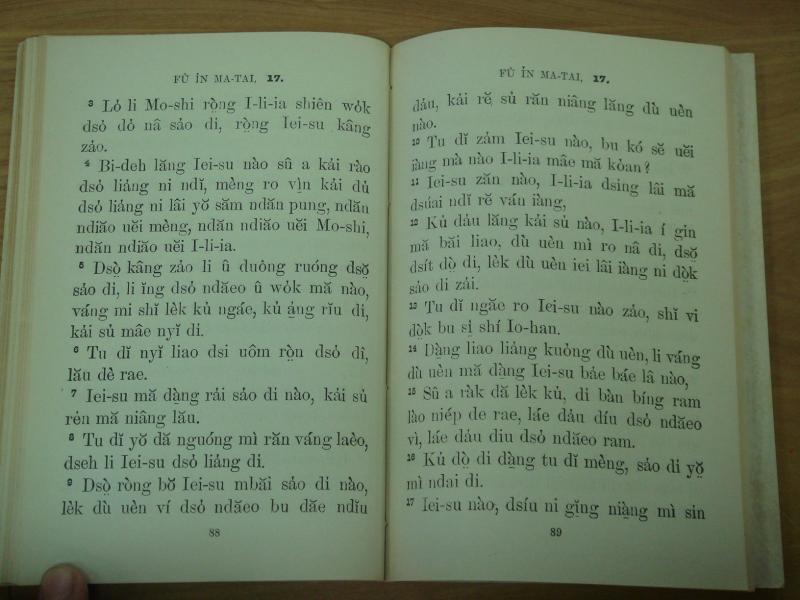 FŬ ỈN MA-TAI, 17.
3 Lỏ li Mo-shi rọ̀ng I-li-ia shiên wỏk
dsỏ dỏ nâ sảo di, rọ̀ng Iei-su kâng
zảo.
4 Bi-deh lăng Iei-su nào sû a kải rào
dsỏ liảng ni ndĭ, mèng ro vìn kải dủ
dsỏ liảng ni lâi yŏ săm ndăn pung, ndăn
ndiăo uĕi mèng, ndăn ndiăo uĕi Mo-shi,
ndăn ndiăo uĕi I-li-ia.
5 Dsọ̀ kâng zảo li û duông ruóng dsŏ̤
sảo di, li ĭng dsỏ ndăeo û wỏk mă nào,
váng mi shĭ lẻk kủ ngáe, kủ ảng rĭu di,
kải sủ mâe nyĭ di.
6 Tu dĭ nyĭ liao dsi uôm rọ̀n dsỏ dî,
lău dè rae.
7 Iei-su mă dạ̀ng rải sảo di nào, kải sủ
rẻn mă niâng lău.
8 Tu dĭ yŏ dă nguóng mì răn váng laèo,
dseh li Iei-su dsỏ liảng di.
9 Dsọ̀ ròng bŏ Iei-su mbăi sảo di nào,
lẻk dù uèn ví dsỏ ndăeo bu dăe ndĭu
88
FŬ ỈN MA-TAI, 17.
dảu, kải rĕ, sủ răn niâng lăng dù uèn
nào.
10 Tu dĭ zảm Iei-su nào, bu kó sĕ uĕi
iàng mà nào I-li-ia mâe mă kỏan?
11 Iei-su zăn nào, I-li-ia dsing lâi mă
dsúai ndĭ rĕ vấu iàng,
12 Kủ dảu lăng kải sủ nào, I-li-ia í gin
mă băi liao, dù uèn mì ro nâ di, dsŏ̤
dsít dọ̀ di, lẻk dù uèn iei lâi iàng ni dọ̀k
sảo di zải.
13 Tu dĭ ngăe ro Iei-su nào zảo, shĭ vi
dọ̀k bu sị shí Io-han.
14 Dạ̀ng liao liảng kuỏng dù uèn, li vấng
dù uèn mă dạ̀ng Iei-su bảe báe lâ nào,
15 Sû a ràk dă lẻk kủ, di bàn bíng ram
lào niép de rae, láe dảu díu dsỏ ndăeo
vì, láe dảu diu dsỏ ndăeo ram.
16 Kủ dọ̀ di dạ̀ng tu dĭ mèng, sảo di yŏ̤
mì ndai di.
17 Iei-su nào, dsíu ni gĭng niạ̀ng mì sin
89